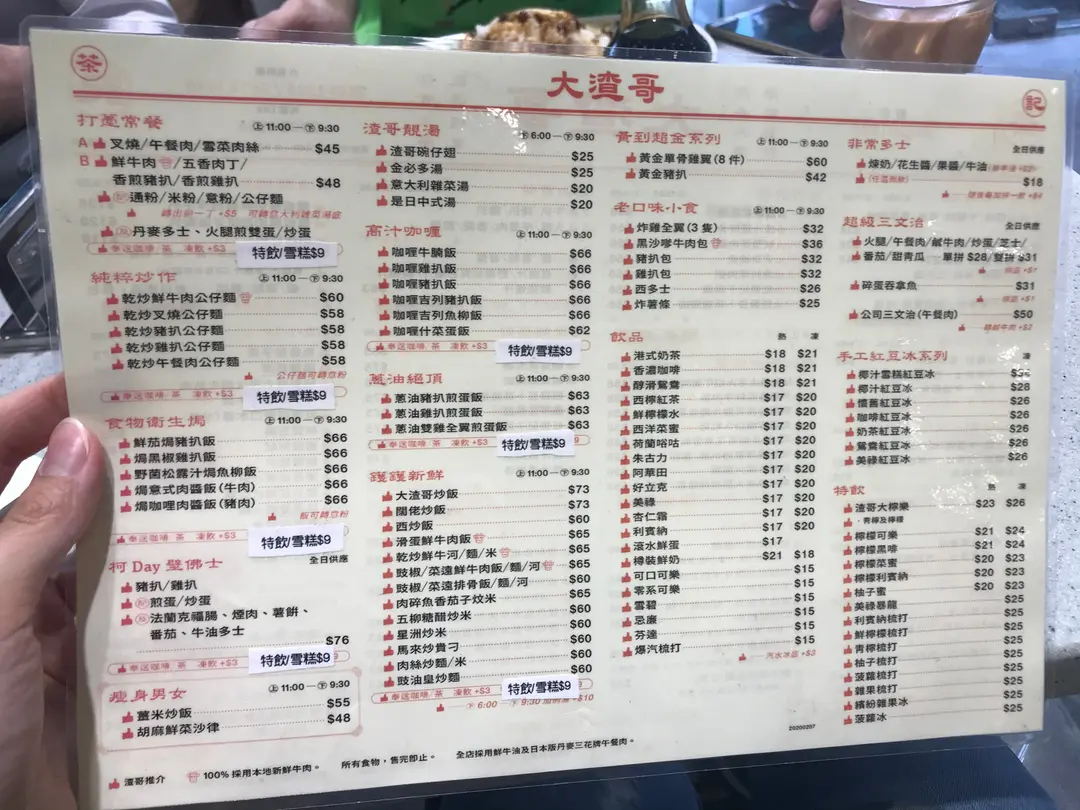 茶
大渣哥
記
打躉常餐 上11:00一下9:30
A 叉燒/午餐肉/雪菜肉絲 $45
B 鮮牛肉/五香肉丁/
香煎豬扒/香煎雞扒 $48
配 通粉/米粉/意粉/公仔麵
轉出前一丁+$5 可轉意大利雜菜湯底
丹麥多士、火腿煎雙蛋/炒蛋
奉送咖啡/茶 凍飲+$3 特飲/雪糕$9
純粹炒作 上11:00一下9:30
乾炒鮮牛肉公仔麵 $60
乾炒叉燒公仔麵 $58
乾炒豬扒公仔麵 $58
乾炒雞扒公仔麵 $58
乾炒午餐肉公仔麵 $58
公仔麵可轉意粉
奉送咖啡/茶 凍飲+$3 特飲/雪糕$9
食物衛生焗 上11:00一下9:30
鮮茄焗豬扒飯 $66
焗黑椒雞扒飯 $66
野菌松露汁焗魚柳飯 $66
焗意式肉醬飯(牛肉) $66
焗咖哩肉醬飯(豬肉) $66
飯可轉意粉
奉送咖啡/茶 凍飲+$3 特飲/雪糕$9
柯 Day 壁佛士 全日供應
豬扒/雞扒
配 煎蛋/炒蛋
法蘭克福腸、煙肉、薯餅、
番茄、牛油多士 $76
奉送咖啡/茶 凍飲+$3 特飲/雪糕$9
瘦身男女 上11:00一下9:30
薑米炒飯 $55
胡麻鮮菜沙律 $48
渣哥靚湯 下6:00一下9:30
渣哥碗仔翅 $25
金必多湯 $25
意大利雜菜湯 $20
是日中式湯 $20
高汁咖喱 上11:00一下9:30
咖喱牛腩飯 $66
咖喱雞扒飯 $66
咖喱豬扒飯 $66
咖喱吉列豬扒飯 $66
咖喱吉列魚柳飯 $66
咖喱什菜蛋飯 $62
奉送咖啡/茶 凍飲+$3 特飲/雪糕$9
蔥油絕頂 上11:00一下9:30
蔥油豬扒煎蛋飯 $63
蔥油雞扒煎蛋飯 $63
蔥油雙雞全翼煎蛋飯 $63
奉送咖啡/茶 凍飲+$3 特飲/雪糕$9
鑊鑊新鮮 上11:00一下9:30
大渣哥炒飯 $73
闊佬炒飯 $73
西炒飯 $60
滑蛋鮮牛肉飯 $65
乾炒鮮牛河/麵/米 $65
豉椒/菜遠鮮牛肉飯/麵/河 $65
豉椒/菜遠排骨飯/麵/河 $60
肉碎魚香茄子炆米 $65
五柳糖醋炒米 $60
星洲炒米 $60
馬來炒貴刁 $60
肉絲炒麵/米 $60
豉油皇炒麵 $60
奉送咖啡/茶 凍飲+$3 特飲/雪糕$9
下6:00一下9:30 +$10
黃到超金系列 上11:00一下9:30
黃金單骨雞翼(8 件) $60
黃金豬扒 $42
老口味小食 上11:00一下9:30
炸雞全翼(3 隻) $32
黑沙嗲牛肉包 $36
豬扒包 $32
雞扒包 $32
西多士 $26
炸薯條 $25
飲品 熱 凍
港式奶茶 $18 $21
香濃咖啡 $18 $21
醇滑鴛鴦 $18 $21
西檸紅茶 $17 $20
鮮檸檬水 $17 $20
西洋菜蜜 $17 $20
荷蘭唂咕 $17 $20
朱古力 $17 $20
阿華田 $17 $20
好立克 $17 $20
美祿 $17 $20
杏仁霜 $17 $20
利賓納 $17 $20
滾水鮮蛋 $17
樽裝鮮奶 $21 $18
可口可樂 $15
零系可樂 $15
雪碧 $15
忌廉 $15
芬達 $15
爆汽梳打 $15
汽水冰區+$3
非常多士 全日供應
煉奶/花生醬/果醬/牛油
(任選兩款) $18
超級三文治 全日供應
火腿/午餐肉/鹹牛肉/炒蛋/芝士/
番茄/甜青瓜 一單拼 $28/雙拼 $31
碎蛋吞拿魚 $31
公司三文治(午餐肉) $50
轉鮮牛肉+$2
手工紅豆冰系列 凍
椰汁雪糕紅豆冰
椰汁紅豆冰 $28
懷舊紅豆冰 $26
咖啡紅豆冰 $26
奶茶紅豆冰 $26
鴛鴦紅豆冰 $26
美祿紅豆冰 $26
特飲 熱 凍
渣哥大檸樂 $23 $26
·青檸及檸檬
檸檬可樂 $21 $24
檸檬黑啡 $21 $24
檸檬菜蜜 $20 $23
檸檬利賓納 $20 $23
柚子蜜 $20 $23
美祿暴龍 $25
利賓納梳打 $25
鮮檸檬梳打 $25
青檸梳打 $25
柚子梳打 $25
菠蘿梳打 $25
雜果梳打 $25
繽紛雜果冰 $25
菠蘿冰 $25
20200207
渣哥推介 100% 採用本地新鮮牛肉。 所有食物，售完即止。 全店採用鮮牛油及日本版丹麥三花牌午餐肉。